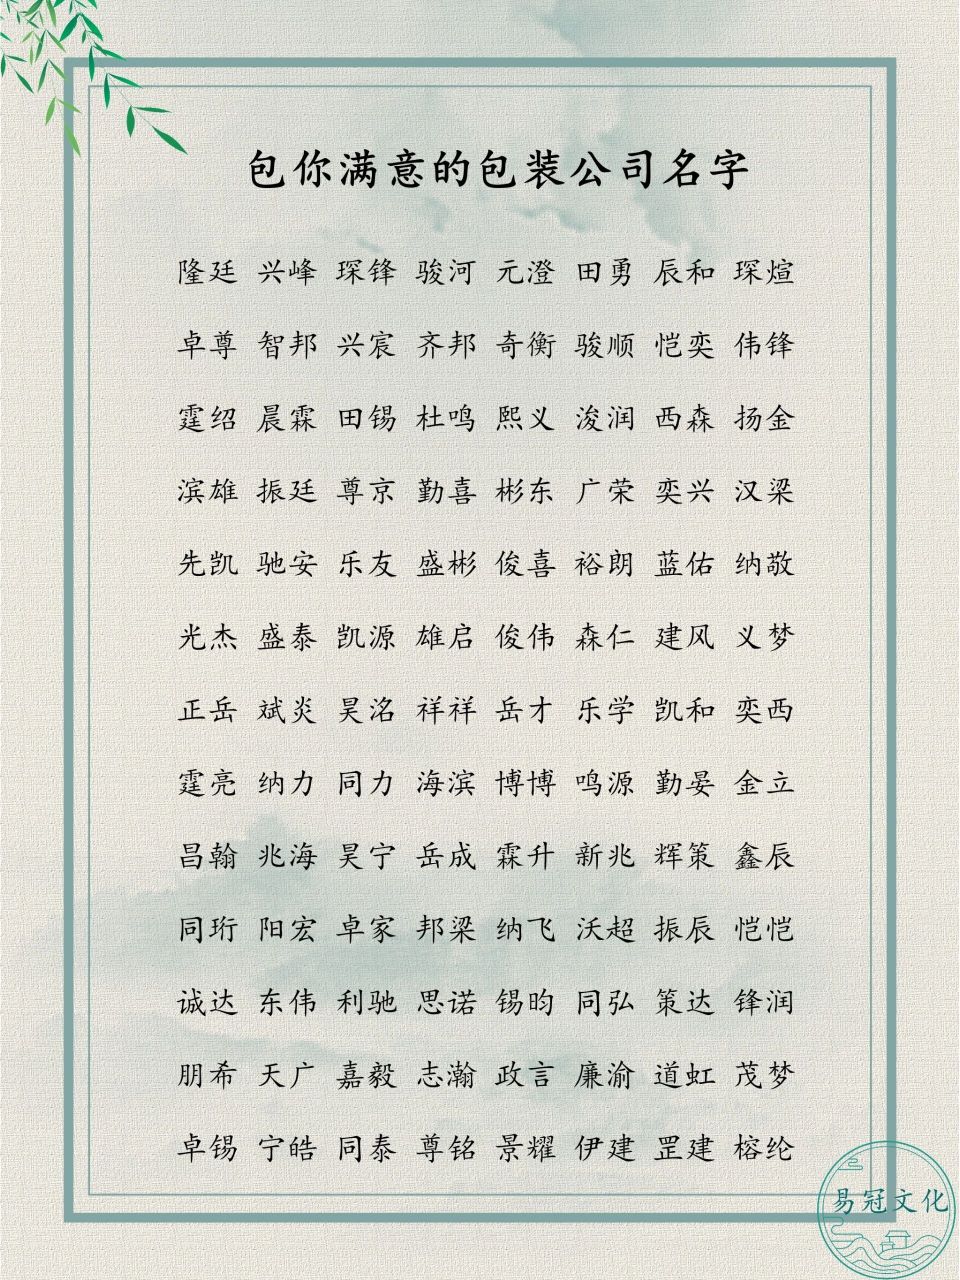 包你满意的包装公司名字
隆廷 兴峰 琛锋 骏河 元澄 田勇 辰和 琛煊
卓尊 智邦 兴宸 齐邦 奇衡 骏顺 恺奕 伟锋
霆绍 晨霖 田锡 杜鸣 熙义 浚润 西森 扬金
滨雄 振廷 尊京 勤喜 彬东 广荣 奕兴 汉梁
先凯 驰安 乐友 盛彬 俊喜 裕朗 蓝佑 纳敬
光杰 盛泰 凯源 雄启 俊伟 森仁 建风 义梦
正岳 斌炎 昊洺 祥祥 岳才 乐学 凯和 奕西
霆亮 纳力 同力 海滨 博博 鸣源 勤晏 金立
昌翰 兆海 昊宁 岳成 霖升 新兆 辉策 鑫辰
同珩 阳宏 卓家 邦梁 纳飞 沃超 振辰 恺恺
诚达 东伟 利驰 思诺 锡昀 同弘 策达 锋润
朋希 天广 嘉毅 志瀚 政言 廉渝 道虹 茂梦
卓锡 宁皓 同泰 尊铭 景耀 伊建 罡建 榕纶
易冠文化